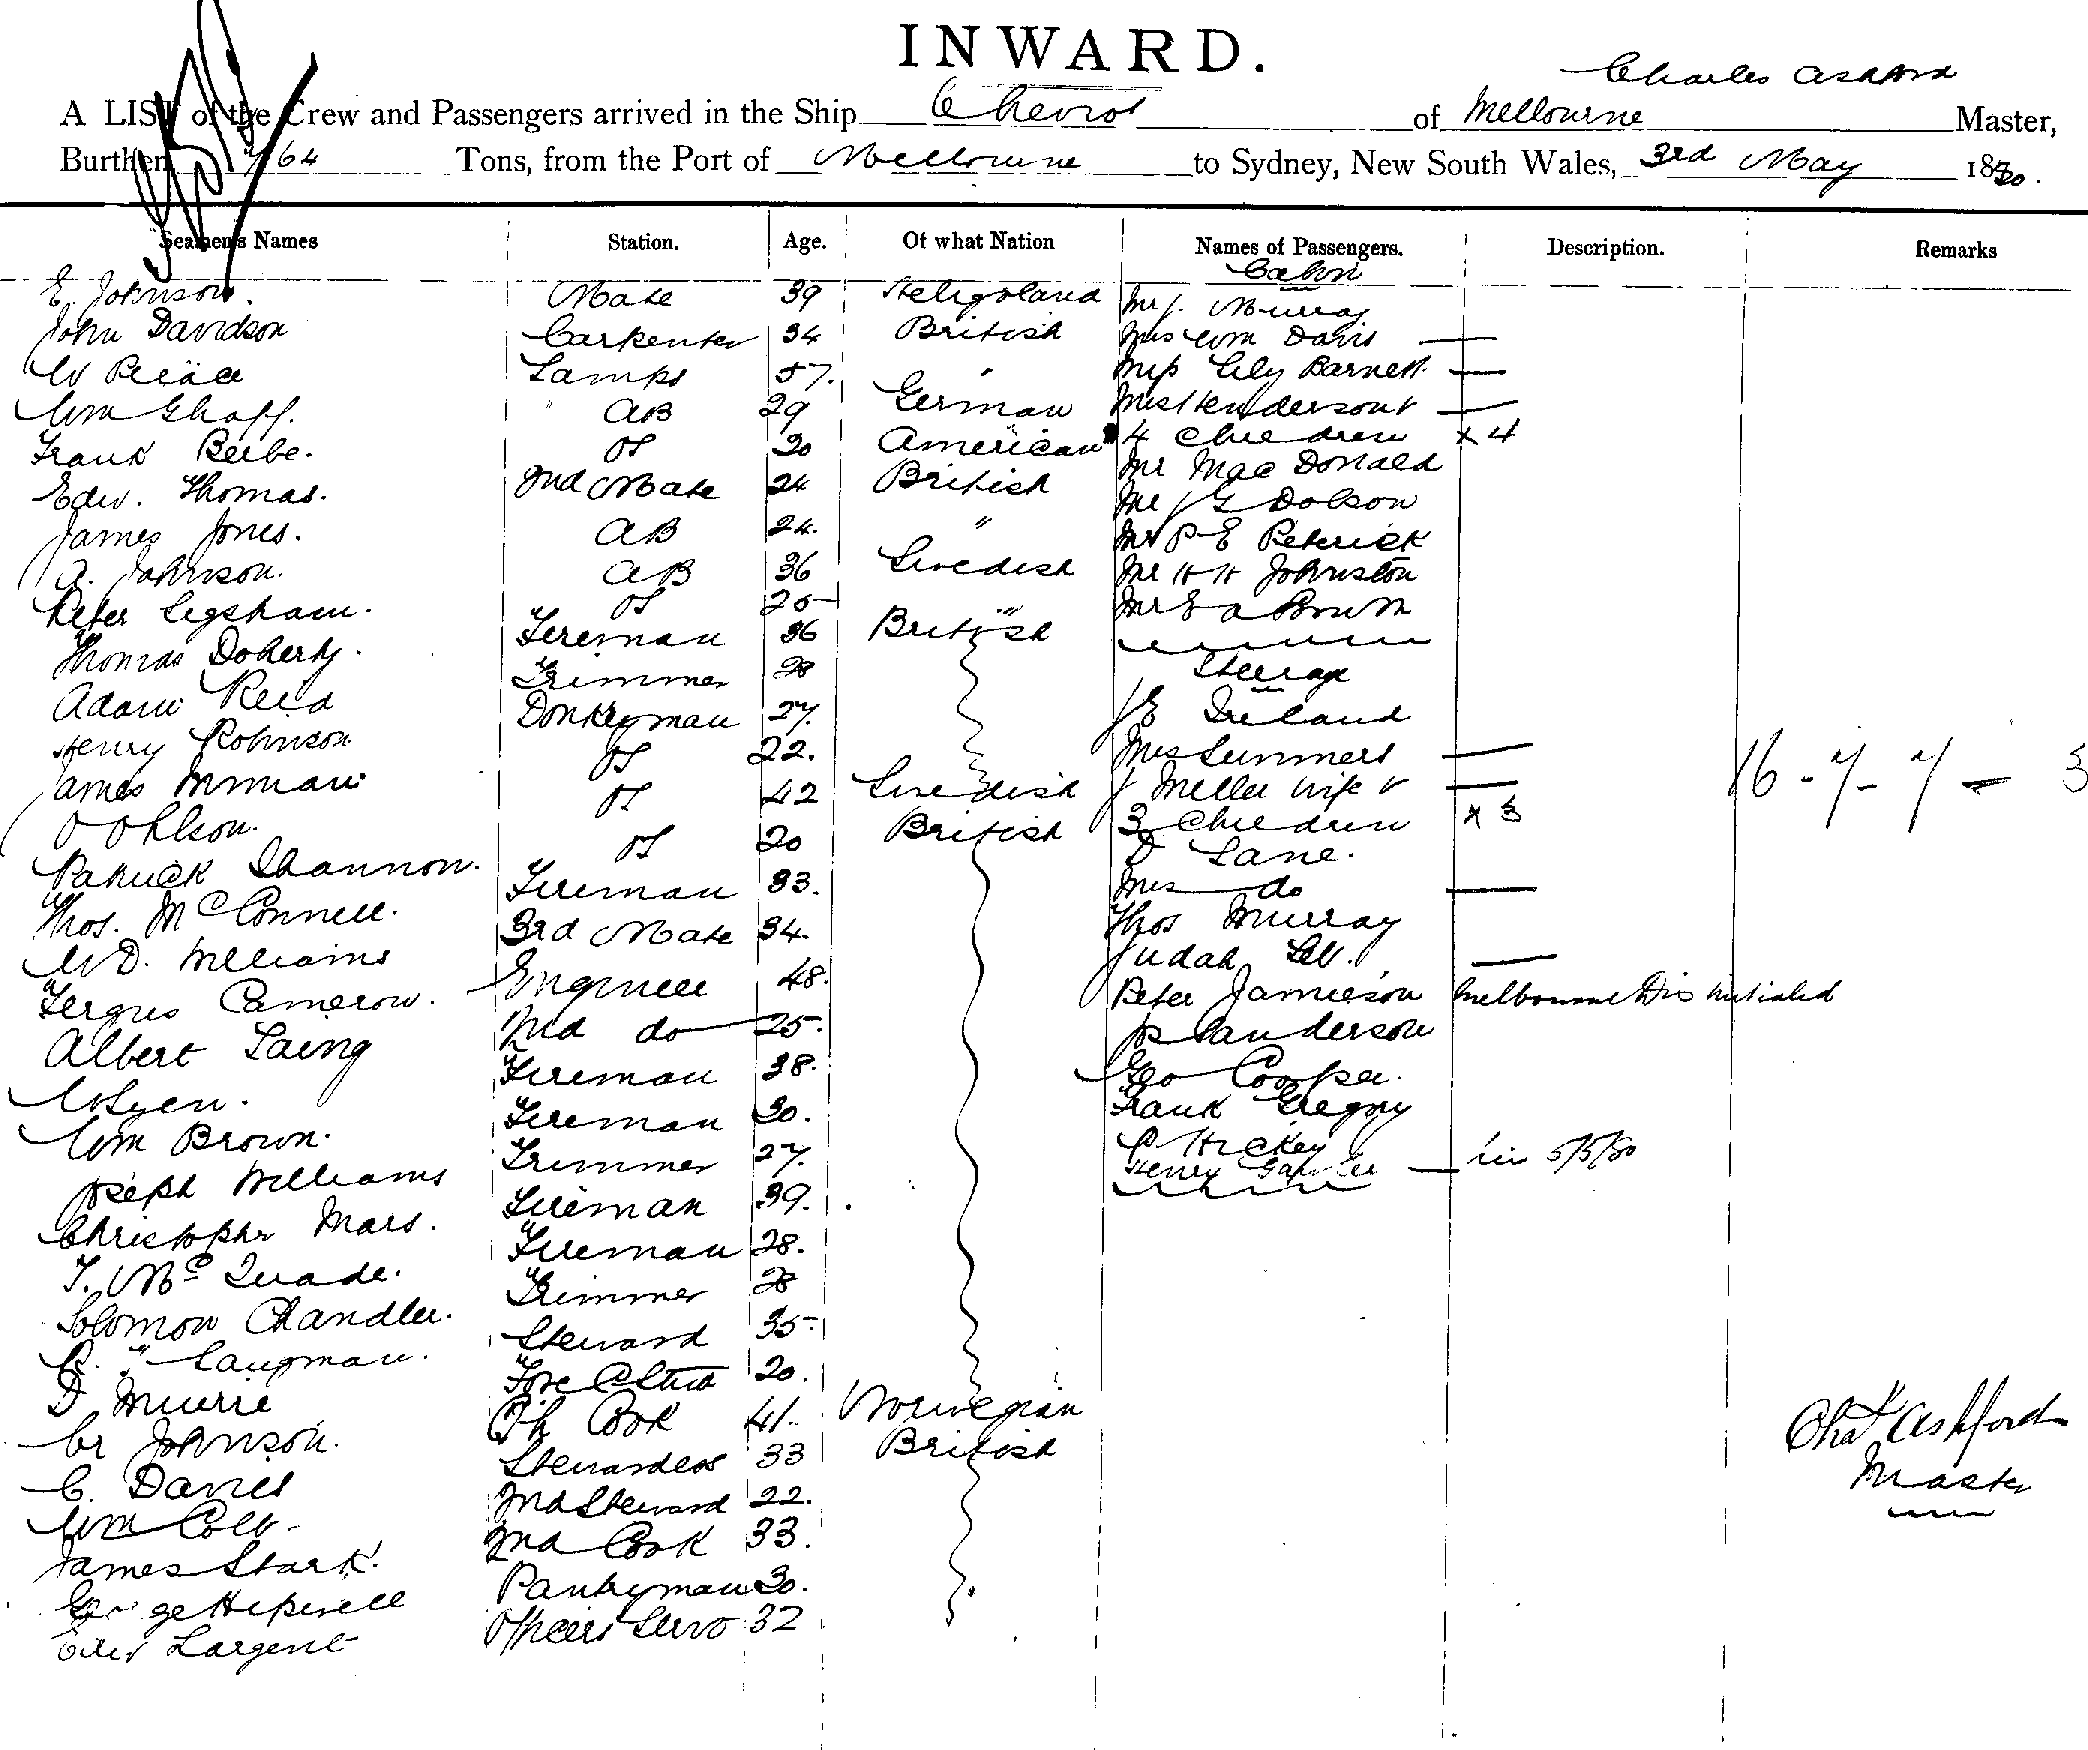 INWARD.
Charles Ashford
A LIST of the Crew and Passengers arrived in the Ship Cheviot of Melbourne Master,
Burthen 764 Tons, from the Port of Melbourne to Sydney, New South Wales, 3rd May 1880.
Seamen's Names Station. Age. Of what Nation Names of Passengers. Description. Remarks
Cabin
E. Johnson. Mate 39 Heligoland Mr J. Murray
John Davidson Carpenter 34 British Mrs Wm Davis —
W Peirce Lamps 57. " Miss Lily Barnett —
Wm Ghaff. " AB 29 German Mrs Henderson & —
Frank Beibe. OS 20 American 4 Children x 4
Edw. Thomas. 2nd Mate 24 British Mr Mac Donald
James Jones. AB 24. " Mr J G Dobson
A. Johnson. AB 36 Swedish Mr P E Petrick
Peter Legsham. OS 25 " Mr H H Johnston
Thomas Doherty. Fireman 36 British Mr E A Brown
Adam Reid Trimmer 28 Steerage
Henry Robinson Donkeyman 27. J E Ireland
James OS 22. Mrs Summers —
O Ohlson. OS 42 Swedish J Miller wife & —
Patrick Shannon. OS 20 British 3 Children x 3
Thos. McConnell. Fireman 33. D Lane.
W D. Williams 3rd Mate 34. Mrs do —
Fergus Cameron. Engineer 48. Thos Murray
Albert Laing 2nd do 25. Judah —
Fireman 38. Peter Jamieson Melbourne Dis
Wm Brown. Fireman 30. Jos Sanderson
Joseph Williams Trimmer 27. Geo Cooper.
Christopher Mars. Fireman 39. Frank Gregory
T. McQuade. Fireman 28. P Hickey
Solomon Chandler. Trimmer 28 Henry — 5/5/80
C. " Langman. Steward 35
D Murrie Fore C Stwd 20.
Cr Johnson. Ch Cook 41. Norwegian
C. Davies Stewardess 33 British
Wm Cole 2nd Steward 22.
James Stark. 2nd Cook 33.
George Hipwell Pantryman 30.
Edw Largent Officers Serv 32
16 - 7 - 7 - 3
Chas Ashford
Master